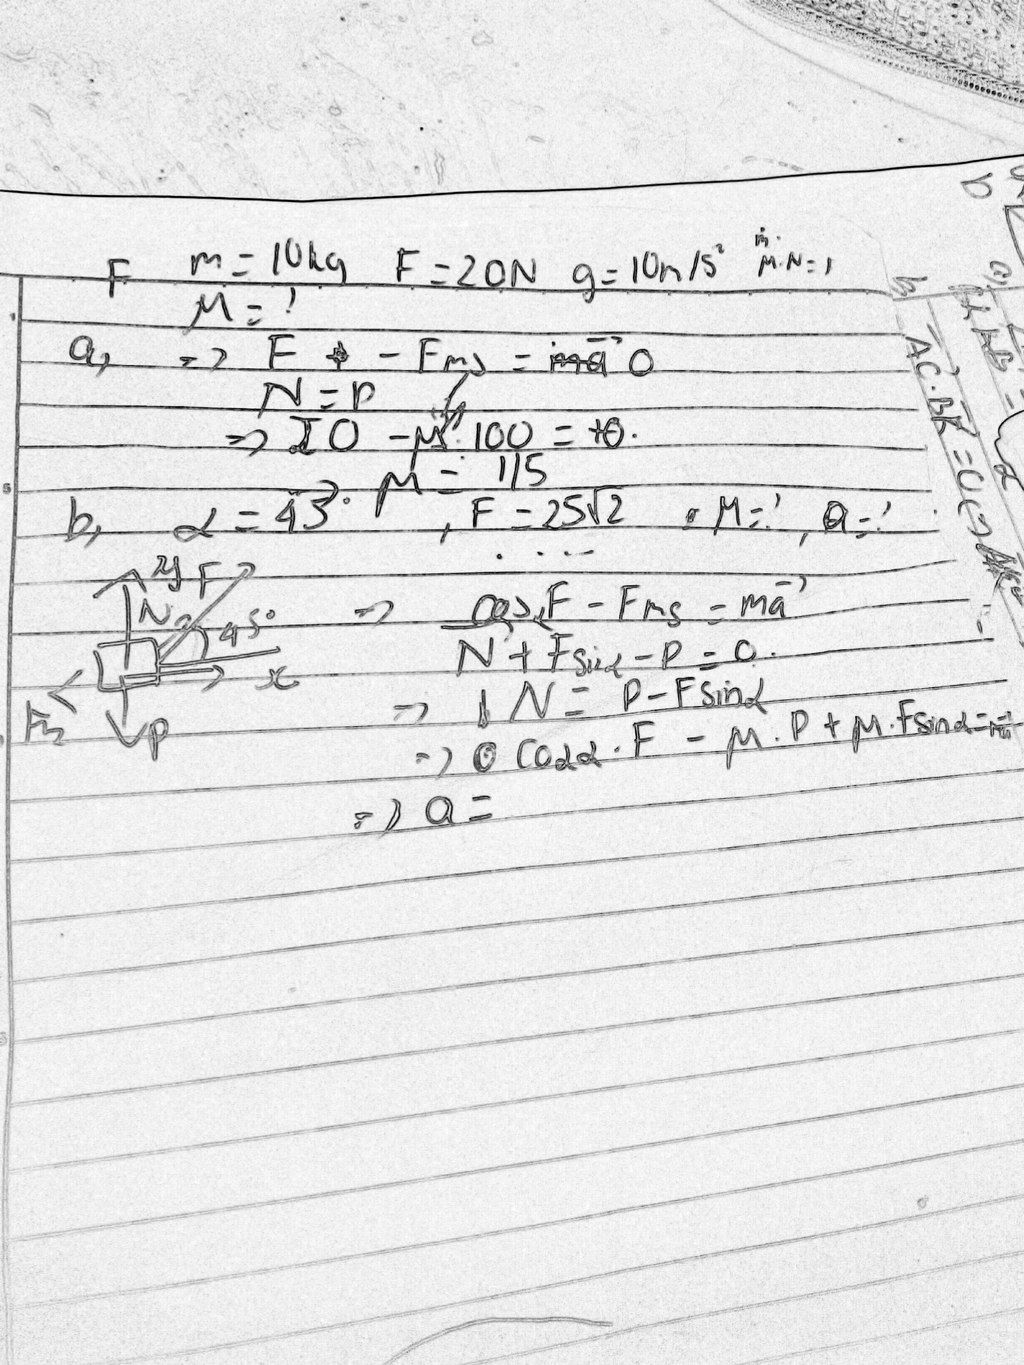 F m = 10kg F = 20N g = 10m/s² μ.N = 1
μ = ?
a, => F - Fms = ma⃗ 0
N = P
=> 20 - μ.100 = 0.
μ = 1/5
b, α = 45°, F = 25√2 . μ = ?, a = ?
y F
N 45°
x
P
=> cosα F - Fms = ma⃗
N + Fsinα - P = 0.
=> N = P - Fsinα
=> cosα . F - μ . P + μ . Fsinα =
=> a =
b
a,
b,
AC.BK =